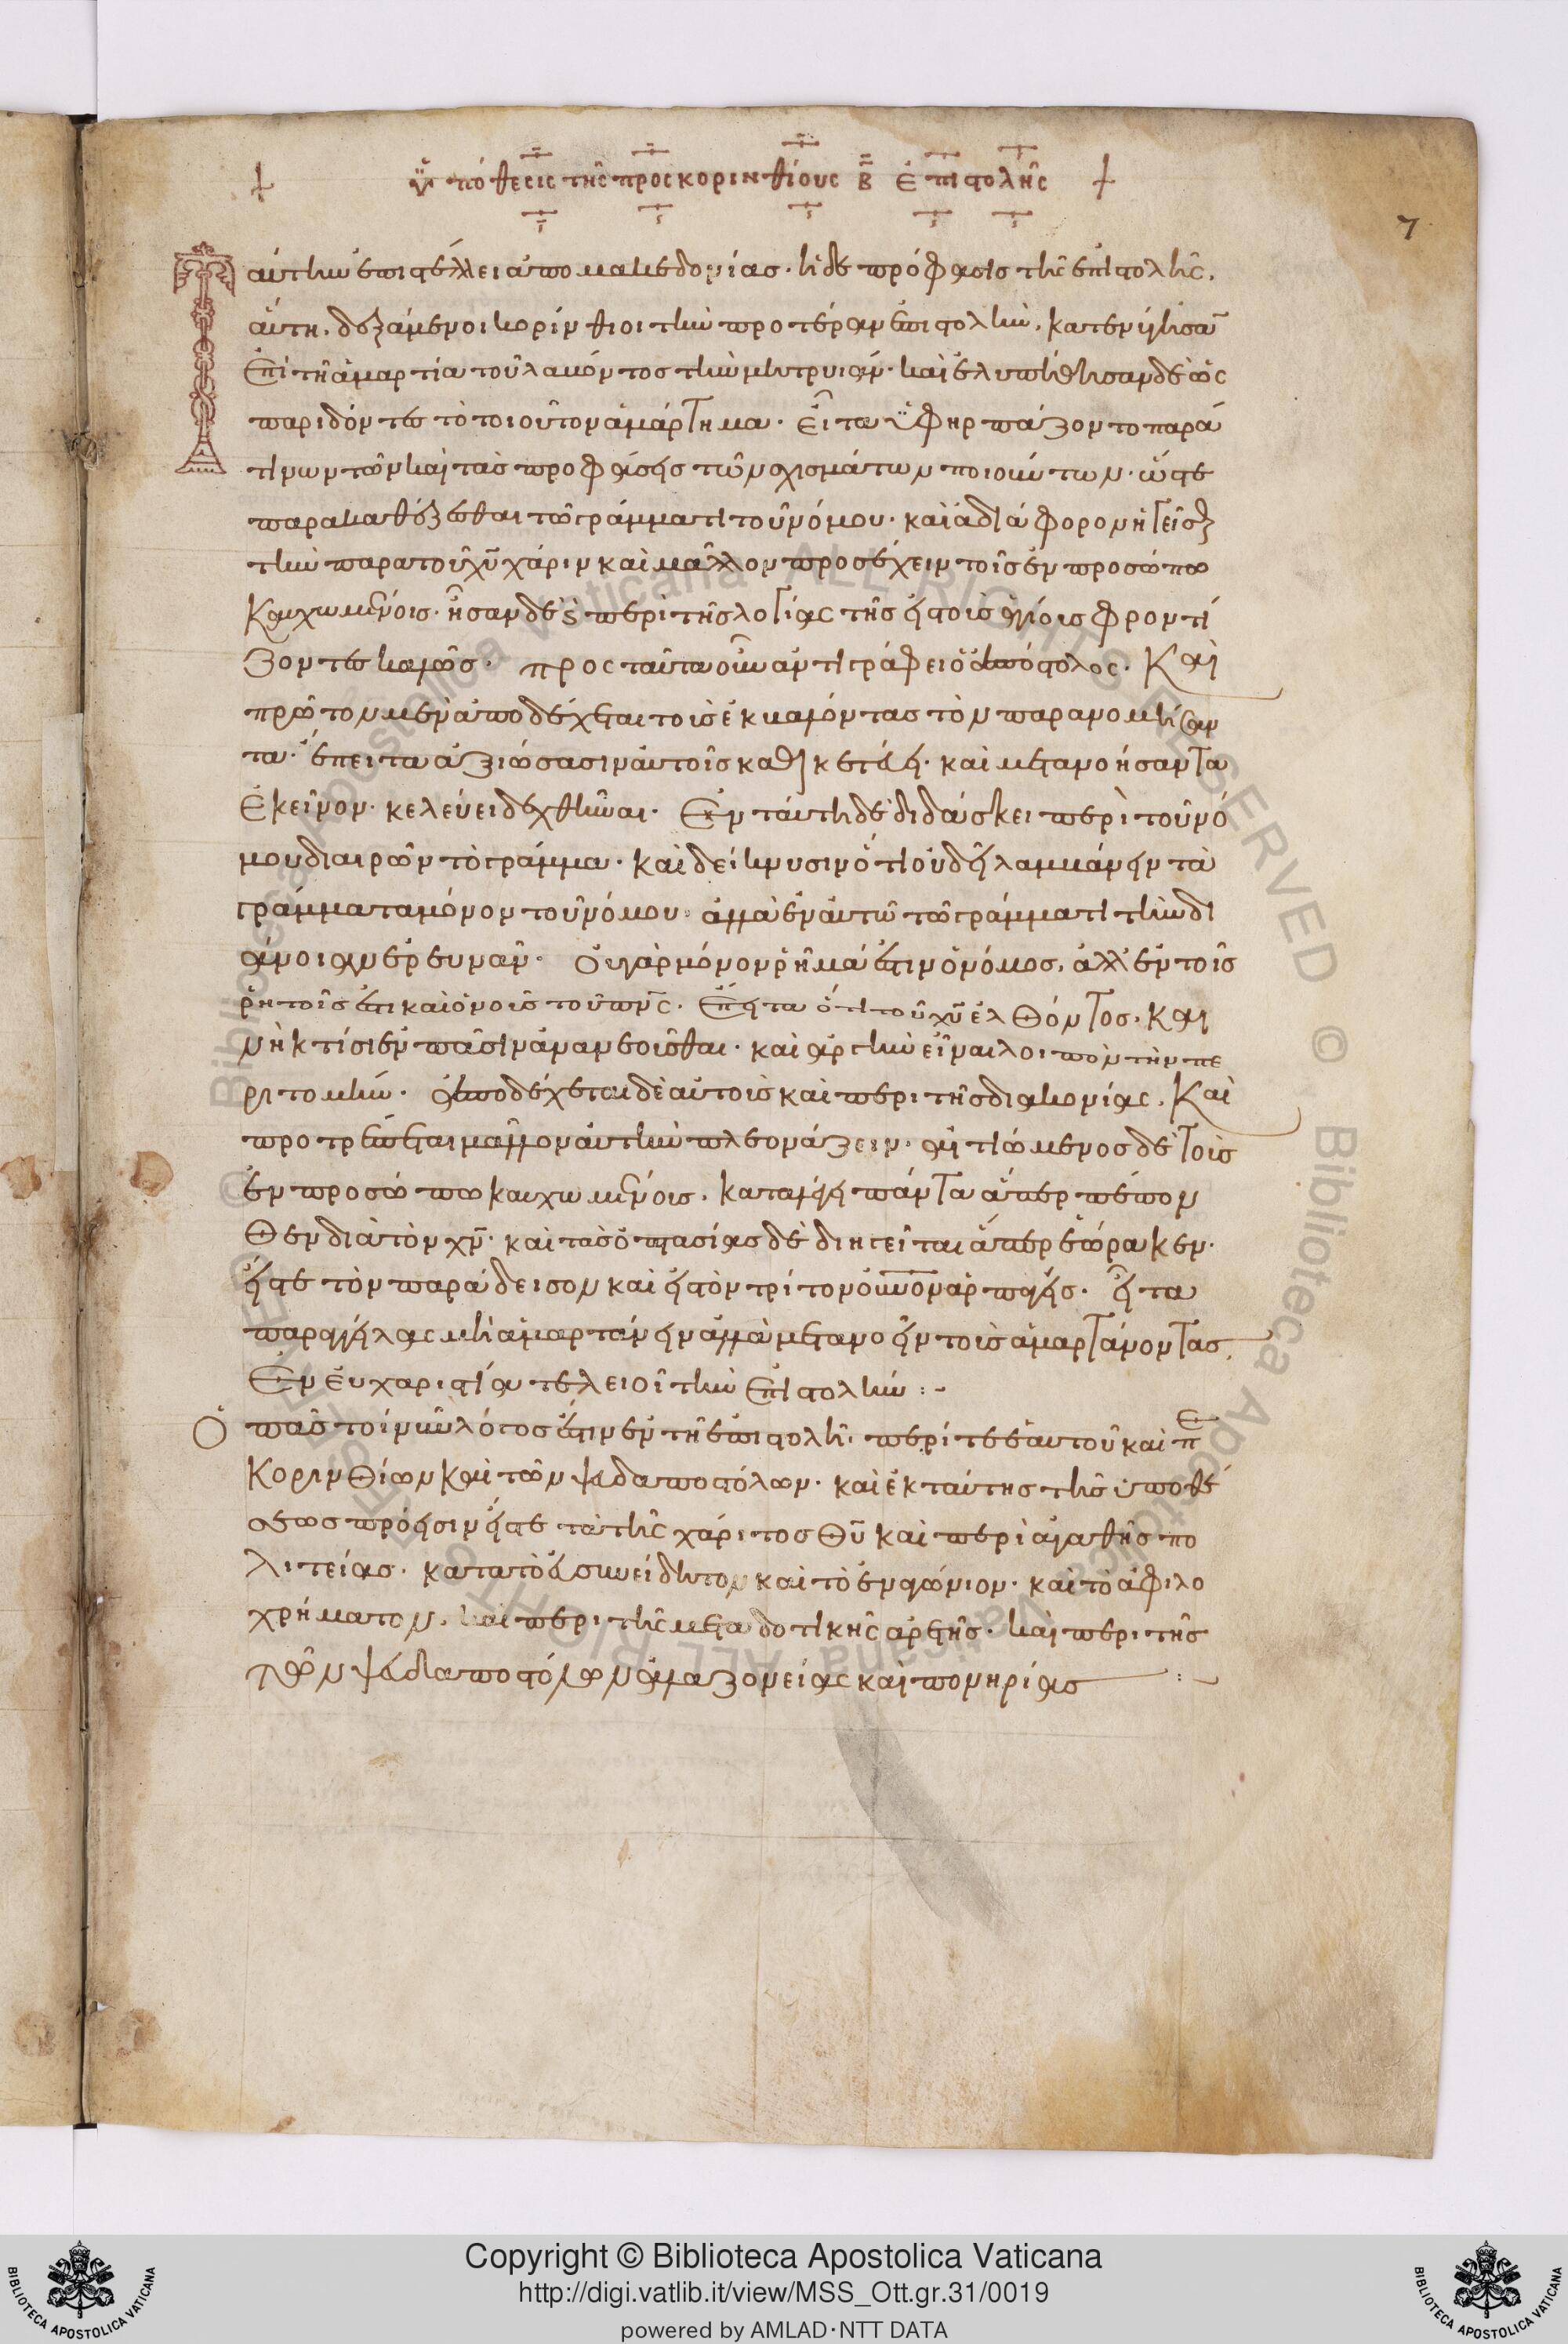 ὑπόθεσις τῆς προς κορινθίους β̅ ἐπιστολῆς
7
Ταύτην ἐπιστέλλει ἀπο μακεδονίας· ἡ δὲ πρόφασις τῆς ἐπιστολῆς,
αὕτη. δεξάμενοι κορίνθιοι τὴν προτέραν ἐπιστολὴν, κατενύγησα̅
ἐπὶ τῆ ἁμαρτία τοῦ λαβόντος τὴν μητρυιάν· καὶ ἐλυπήθησαν δὲ ὡς
παριδόντες τὸ τοιοῦτον ἁμάρτημα· εἶτα ὑφηρπάζοντο παρά
τινων τῶν καὶ τὰς προφάσεις τῶν σχισμάτων ποιούντων· ὥστε
παρακαθέζεσθαι τῶ γράμματι τοῦ νόμου· καὶ ἀδιάφορον ἡγεῖσθ
τὴν παρα τοῦ χυ̅ χάριν καὶ μᾶλλον προσέχειν τοῖς ἐν προσώπω
καυχωμένοις· ἦσαν δὲ ϛ περὶ τῆς λογίας τῆς εἰς τοὺς ἁγίους φροντί
ζοντες καλῶς· προς ταῦτα οὖν ἀντιγράφει ὁ ἀπόστολος· Καὶ
πρῶτον μὲν ἀποδέχεται τοὺς ἐκβαλόντας τὸν παρανομήσαν
τα· ἔπειτα ἀξιώσασιν αὐτοῖς καὶ μετανοήσαντα
ἐκεῖνον· κελεύει δεχθῆναι· Ἐν ταύτη δὲ διδάσκει περὶ τοῦ νό
μου διαιρῶν τὸ γράμμα· καὶ δείκνυσιν ὅτι οὐ δεῖ λαμβάνειν τὰ
γράμματα μόνον τοῦ νόμου· ἀλλὰ ἐν αὐτῶ τῶ γράμματι τὴν δι
άνοιαν ἐρευνᾶν· Οὐ γὰρ μόνον ῥῆμά ἐστιν ὁ νόμος, ἀλλ' ἐν τοῖς
ῥητοῖς ἐστι καὶ ὁ νοῦς τοῦ πνς̅· Ἔπειτα ὅτι τοῦ χυ̅ ἐλθόντος· Και
νὴ κτίσις ἐν πᾶσιν ἀνανεοῦσθαι· καὶ ἀργὴν εἶναι λοιπὸν τὴν πε
ριτομήν· ἀποδέχεται δὲ αὐτοὺς καὶ περὶ τῆς διακονίας. Καὶ
προτρέπεται μᾶλλον αὐτὴν πλεονάζειν· αἰτιώμενος δὲ τοὺς
ἐν προσώπω καυχωμένοις. καταλέγει πάντα ἅπερ πέπον
θεν διὰ τὸν χν̅· καὶ τὰς ὀπτασίας δὲ διηγεῖται ἅπερ ἑώρακεν·
εἴς τε τὸν παράδεισον καὶ εἰς τὸν τρίτον οὐνον ἁρπαγείς· εἶτα
παραγγείλας μὴ ἁμαρτάνειν ἀλλὰ μετανοεῖν τοὺς ἁμαρτάνοντας,
Ἐν εὐχαριστία τελειοῖ τὴν ἐπιστολήν :-
Ὁ πᾶς τοίνυν λόγος ἐστιν ἐν τῆ ἐπιστολῆ· περί τε ἑαυτοῦ καὶ πε
Κορινθίων καὶ τῶν ψευδαποστόλων· καὶ ἐκ ταύτης τῆς ὑποθέ
σεως πρόεισιν εἴς τε τὰ τῆς χάριτος θυ̅ καὶ περὶ ἀγαθῆς πο
λιτείας· κατα τὸ εὐσυνείδητον καὶ τὸ ἐναγώνιον· καὶ τὸ ἀφιλο
χρήματον, καὶ περι τῆς μεταδοτικῆς ἀρετῆς· καὶ περι τῆς
τῶν ψευδαποστόλων ἀλαζονείας καὶ πονηρίας :-
Copyright © Biblioteca Apostolica Vaticana
http://digi.vatlib.it/view/MSS_Ott.gr.31/0019
powered by AMLAD·NTT DATA
BIBLIOTECA APOSTOLICA VATICANA
BIBLIOTECA APOSTOLICA VATICANA